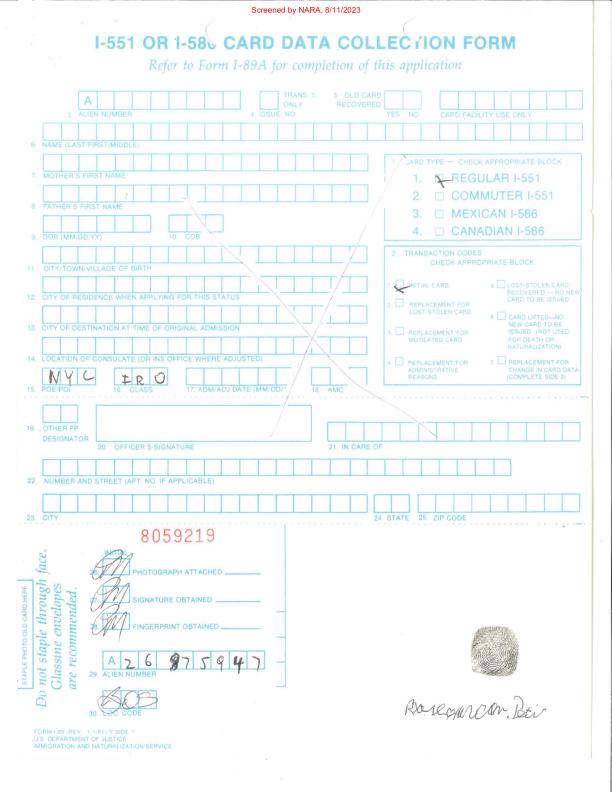 Screened by NARA, 8/11/2023
I-551 OR I-586 CARD DATA COLLECTION FORM
Refer to Form I-89A for completion of this application
A
3. ALIEN NUMBER
4. ISSUE NO
TRANS. 5.
ONLY
5. OLD CARD
RECOVERED
YES NO
CARD FACILITY USE ONLY
6. NAME (LAST/FIRST/MIDDLE)
7. MOTHER'S FIRST NAME
8. FATHER'S FIRST NAME
9. DOB (MM/DD/YY)
10. COB
11. CITY/TOWN/VILLAGE OF BIRTH
12. CITY OF RESIDENCE WHEN APPLYING FOR THIS STATUS
13. CITY OF DESTINATION AT TIME OF ORIGINAL ADMISSION
14. LOCATION OF CONSULATE (OR INS OFFICE WHERE ADJUSTED)
1. CARD TYPE — CHECK APPROPRIATE BLOCK
1. REGULAR I-551
2. COMMUTER I-551
3. MEXICAN I-586
4. CANADIAN I-586
2. TRANSACTION CODES
CHECK APPROPRIATE BLOCK
1. INITIAL CARD
2. REPLACEMENT FOR
LOST-STOLEN CARD
3. REPLACEMENT FOR
MUTILATED CARD
4. REPLACEMENT FOR
ADMINISTRATIVE
REASONS
LOST-STOLEN CARD
RECOVERED — NO NEW
CARD TO BE ISSUED
CARD LIFTED—NO
NEW CARD TO BE
ISSUED (NOT USED
FOR DEATH OR
NATURALIZATION)
7. REPLACEMENT FOR
CHANGE IN CARD DATA
(COMPLETE SIDE 2)
NYC IRO
15. POE/POI
16. CLASS
17. ADM/ADJ DATE (MM/DD/
18. AMC
19. OTHER FP
DESIGNATOR
20. OFFICER'S SIGNATURE
21. IN CARE OF
22. NUMBER AND STREET (APT. NO. IF APPLICABLE)
23. CITY
24. STATE
25. ZIP CODE
8059219
INITIAL
26. PHOTOGRAPH ATTACHED
27. SIGNATURE OBTAINED
28. FINGERPRINT OBTAINED
A 26 875947
29. ALIEN NUMBER
30. LOC CODE
STAPLE PHOTO/OLD CARD HERE
Do not staple through face.
Glassine envelopes
are recommended.
FORM I-89 (REV. 1-1-81) Y SIDE 1
U.S. DEPARTMENT OF JUSTICE
IMMIGRATION AND NATURALIZATION SERVICE